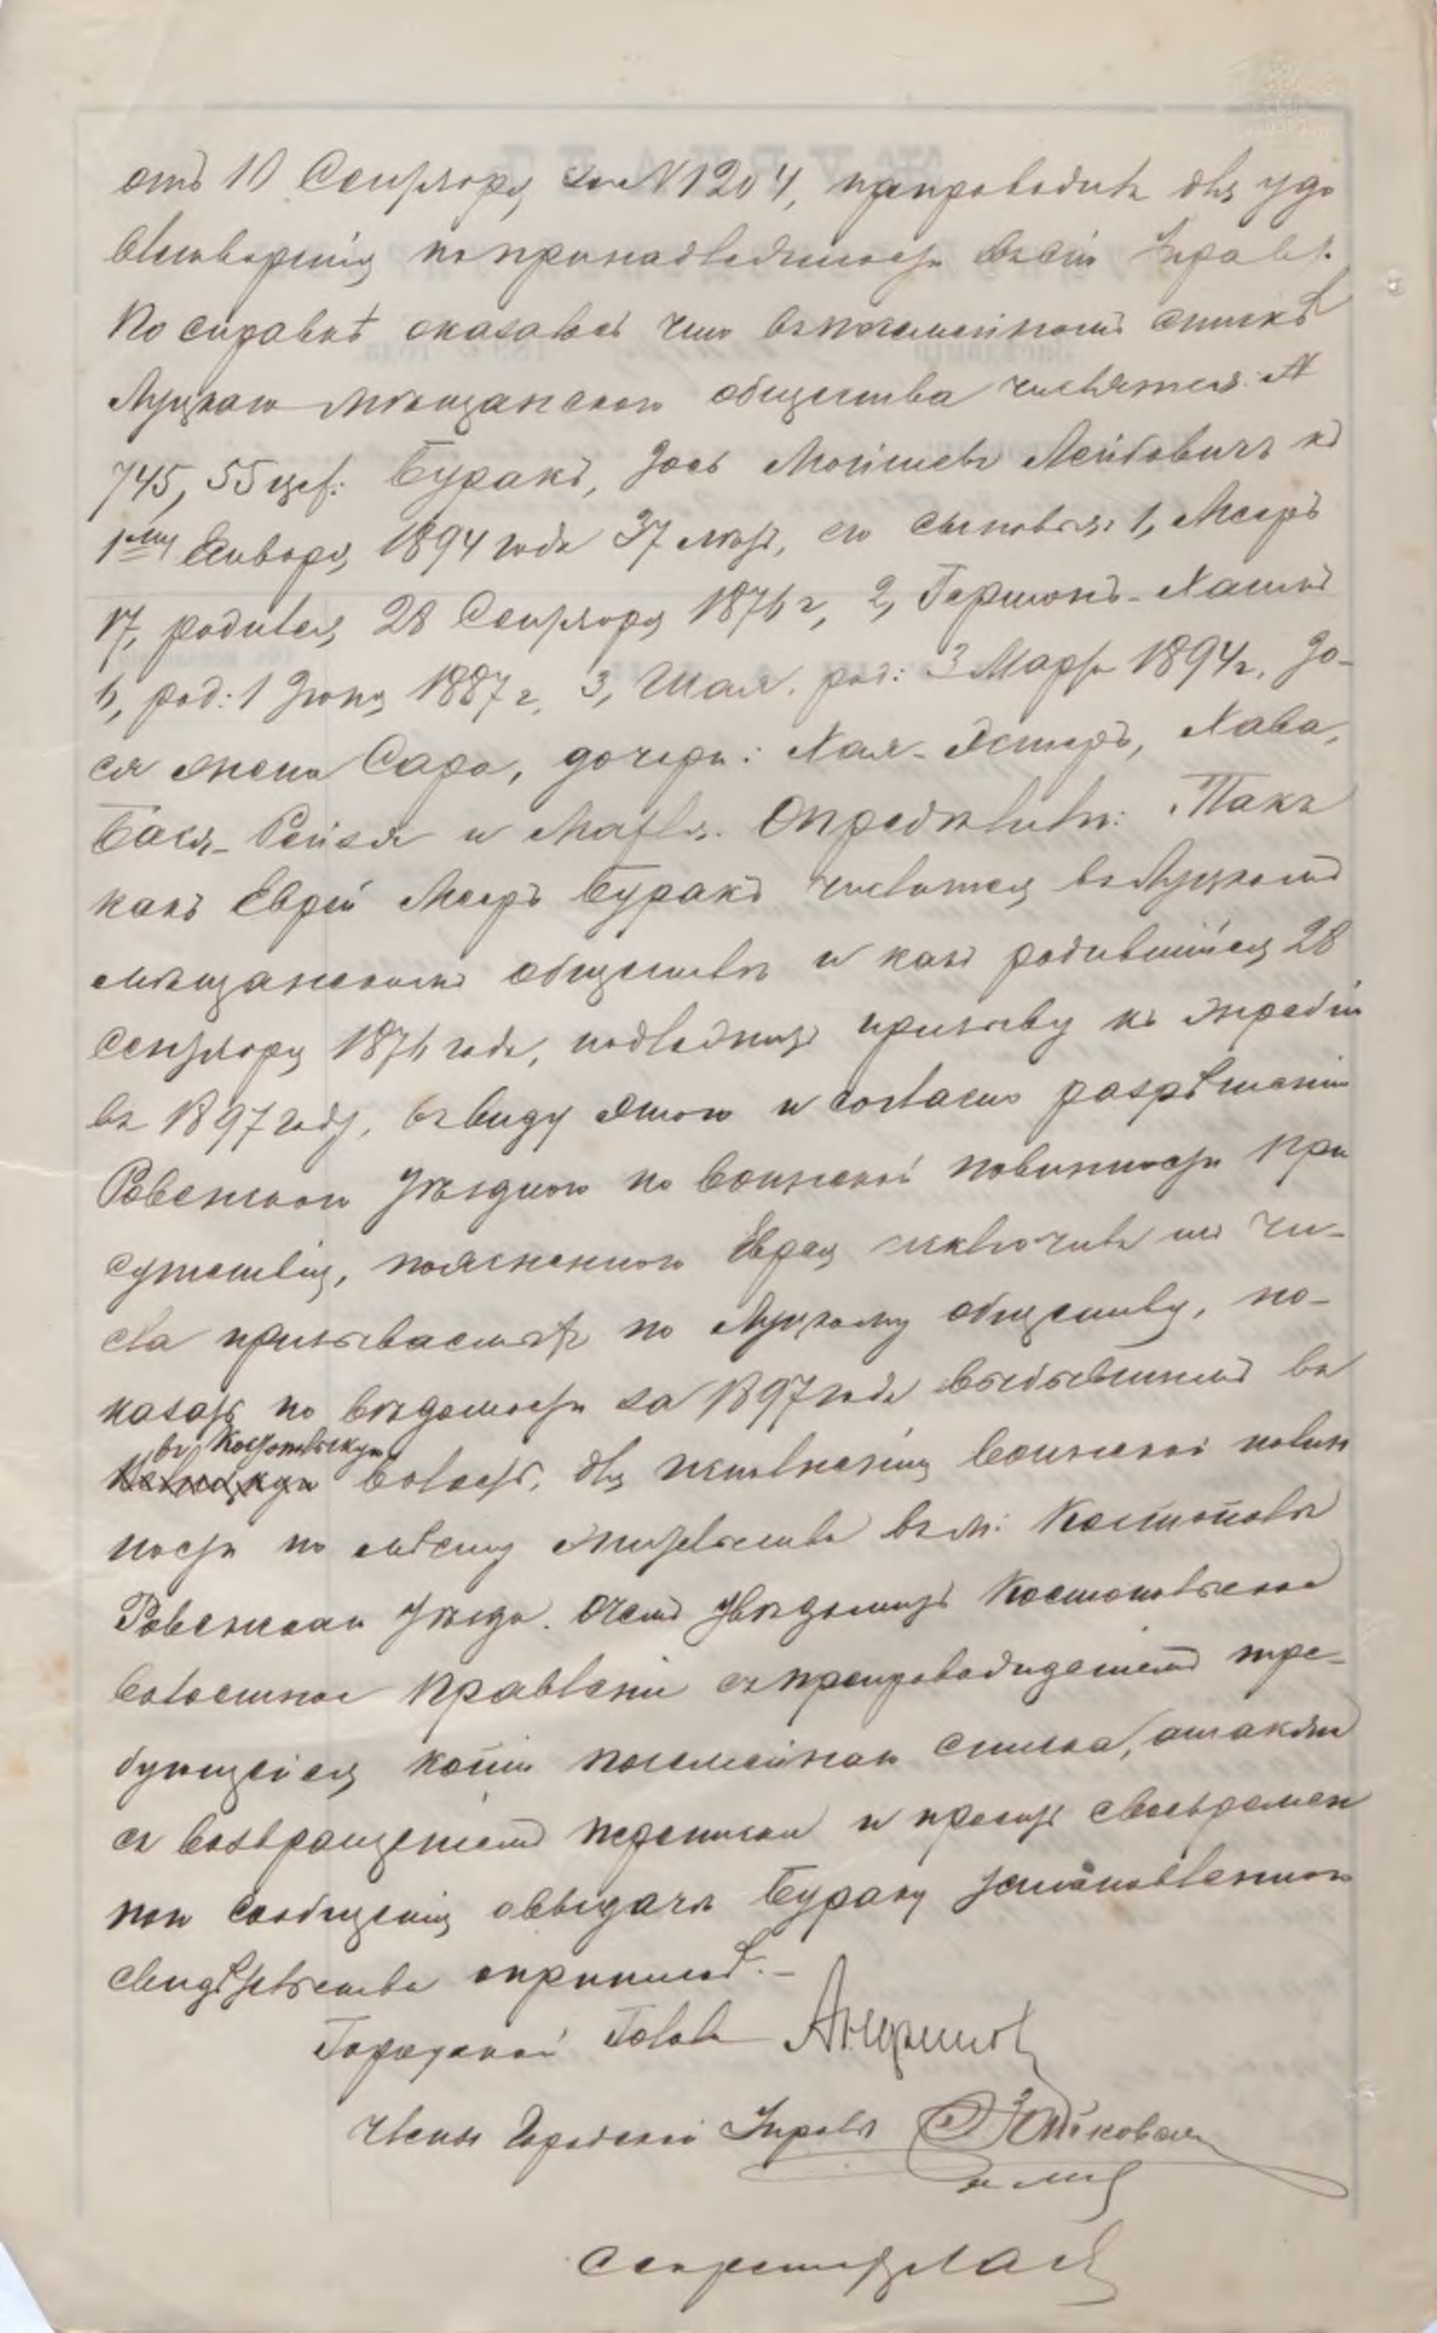 отъ 10 Сентября за N 1204, препроводить для удо
влетворенія по принадлежности въ сію Управу.
По справкѣ оказалось что въ посемейномъ спискѣ
Луцкаго мѣщанскаго общества числятся: N
745, 55 цеф: Буракъ, Іось Мойшевъ Лейбовичъ къ
1му Января 1894 года 37 лѣтъ, его сыновья: 1, Мееръ
17, родился 28 Сентября 1876 г, 2, Гершонъ-Хаимъ
6, род: 1 Іюня 1887 г, 3, Шая. род: 3 Марта 1894 г. Іо-
ся жена Сара, дочери: Хая-Эстеръ, Хава,
Бася-Рейзя и Матля. Опредѣлили: Такъ
какъ Еврей Мееръ Буракъ числится въ Луцкомъ
мѣщанскомъ обществѣ и какъ родившійся 28
Сентября 1876 года, подлежитъ призыву къ жребію
въ 1897 году, въ виду этого и согласно разрѣшенію
Ровенскаго Уѣзднаго по воинской повинности При
сутствія, поясненнаго Еврея исключить изъ чи-
сла призываемыхъ по Луцкому обществу, по-
казать по вѣдомости за 1897 годъ выбывшимъ въ
въ Костопольскую
волость, для исполненія воинской повин
ности по мѣсту жительства въ м: Костополѣ
Ровенскаго Уѣзда. О чемъ увѣдомить Костопольское
Волостное Правленіе съ препровожденіемъ тре-
бующейся копіи посемейнаго списка, а также
съ возвращеніемъ переписки и просить своевремен
наго сообщенія о выдачѣ Бураку установленнаго
свидѣтельства о припискѣ.-
Городской Голова
Члены Городской Управы
Секретарь